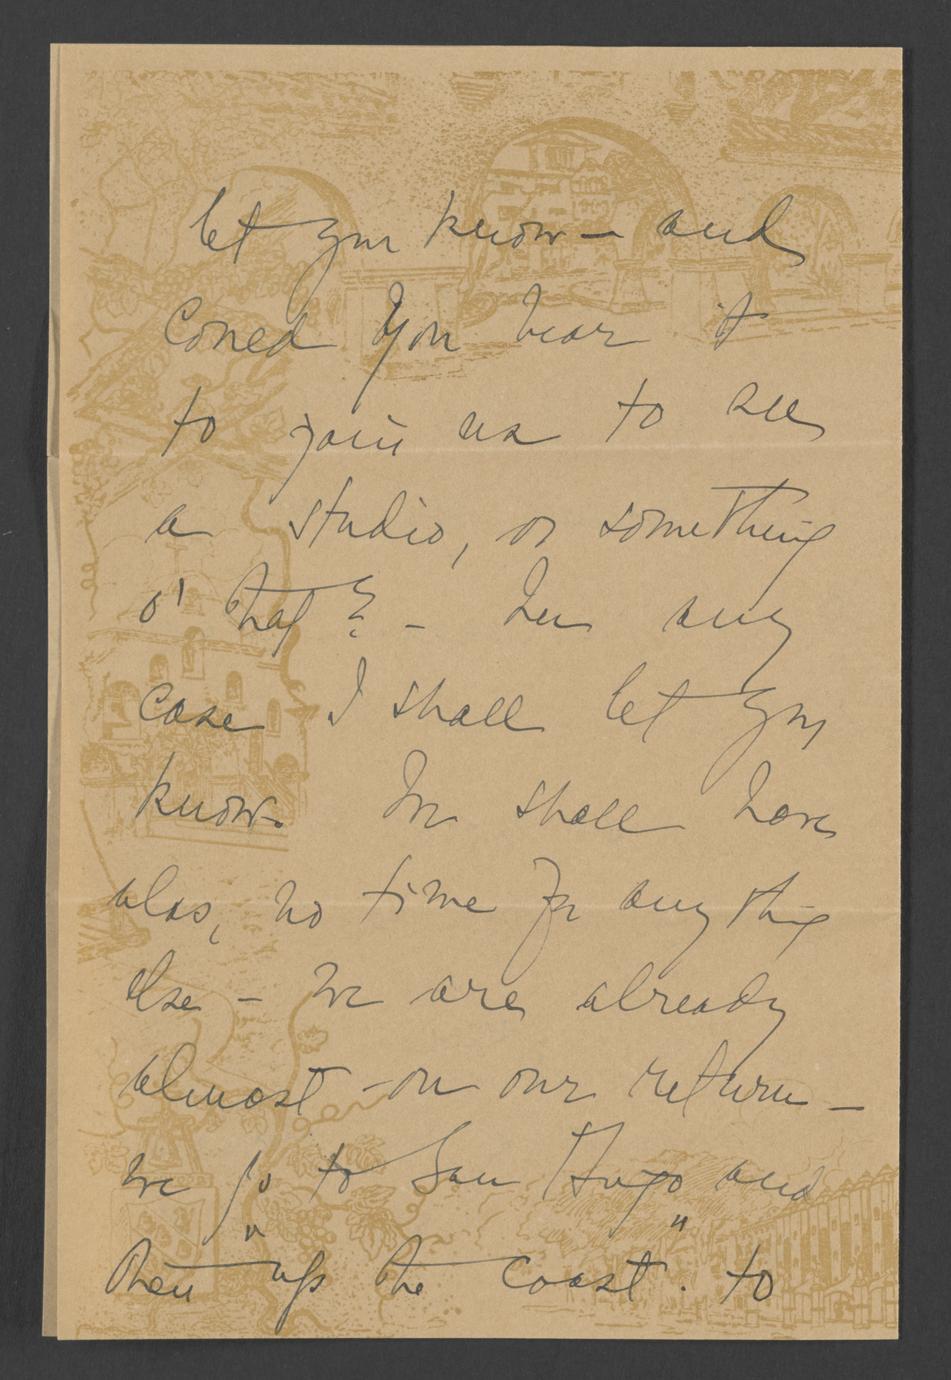 let you know — and
could you bear it
to join us to see
a studio, or something
o' that? — In any
case I shall let you
know. We shall have
alas, no time for anything
else — We are already
almost on our return —
We go to San
and
then "up the coast". to